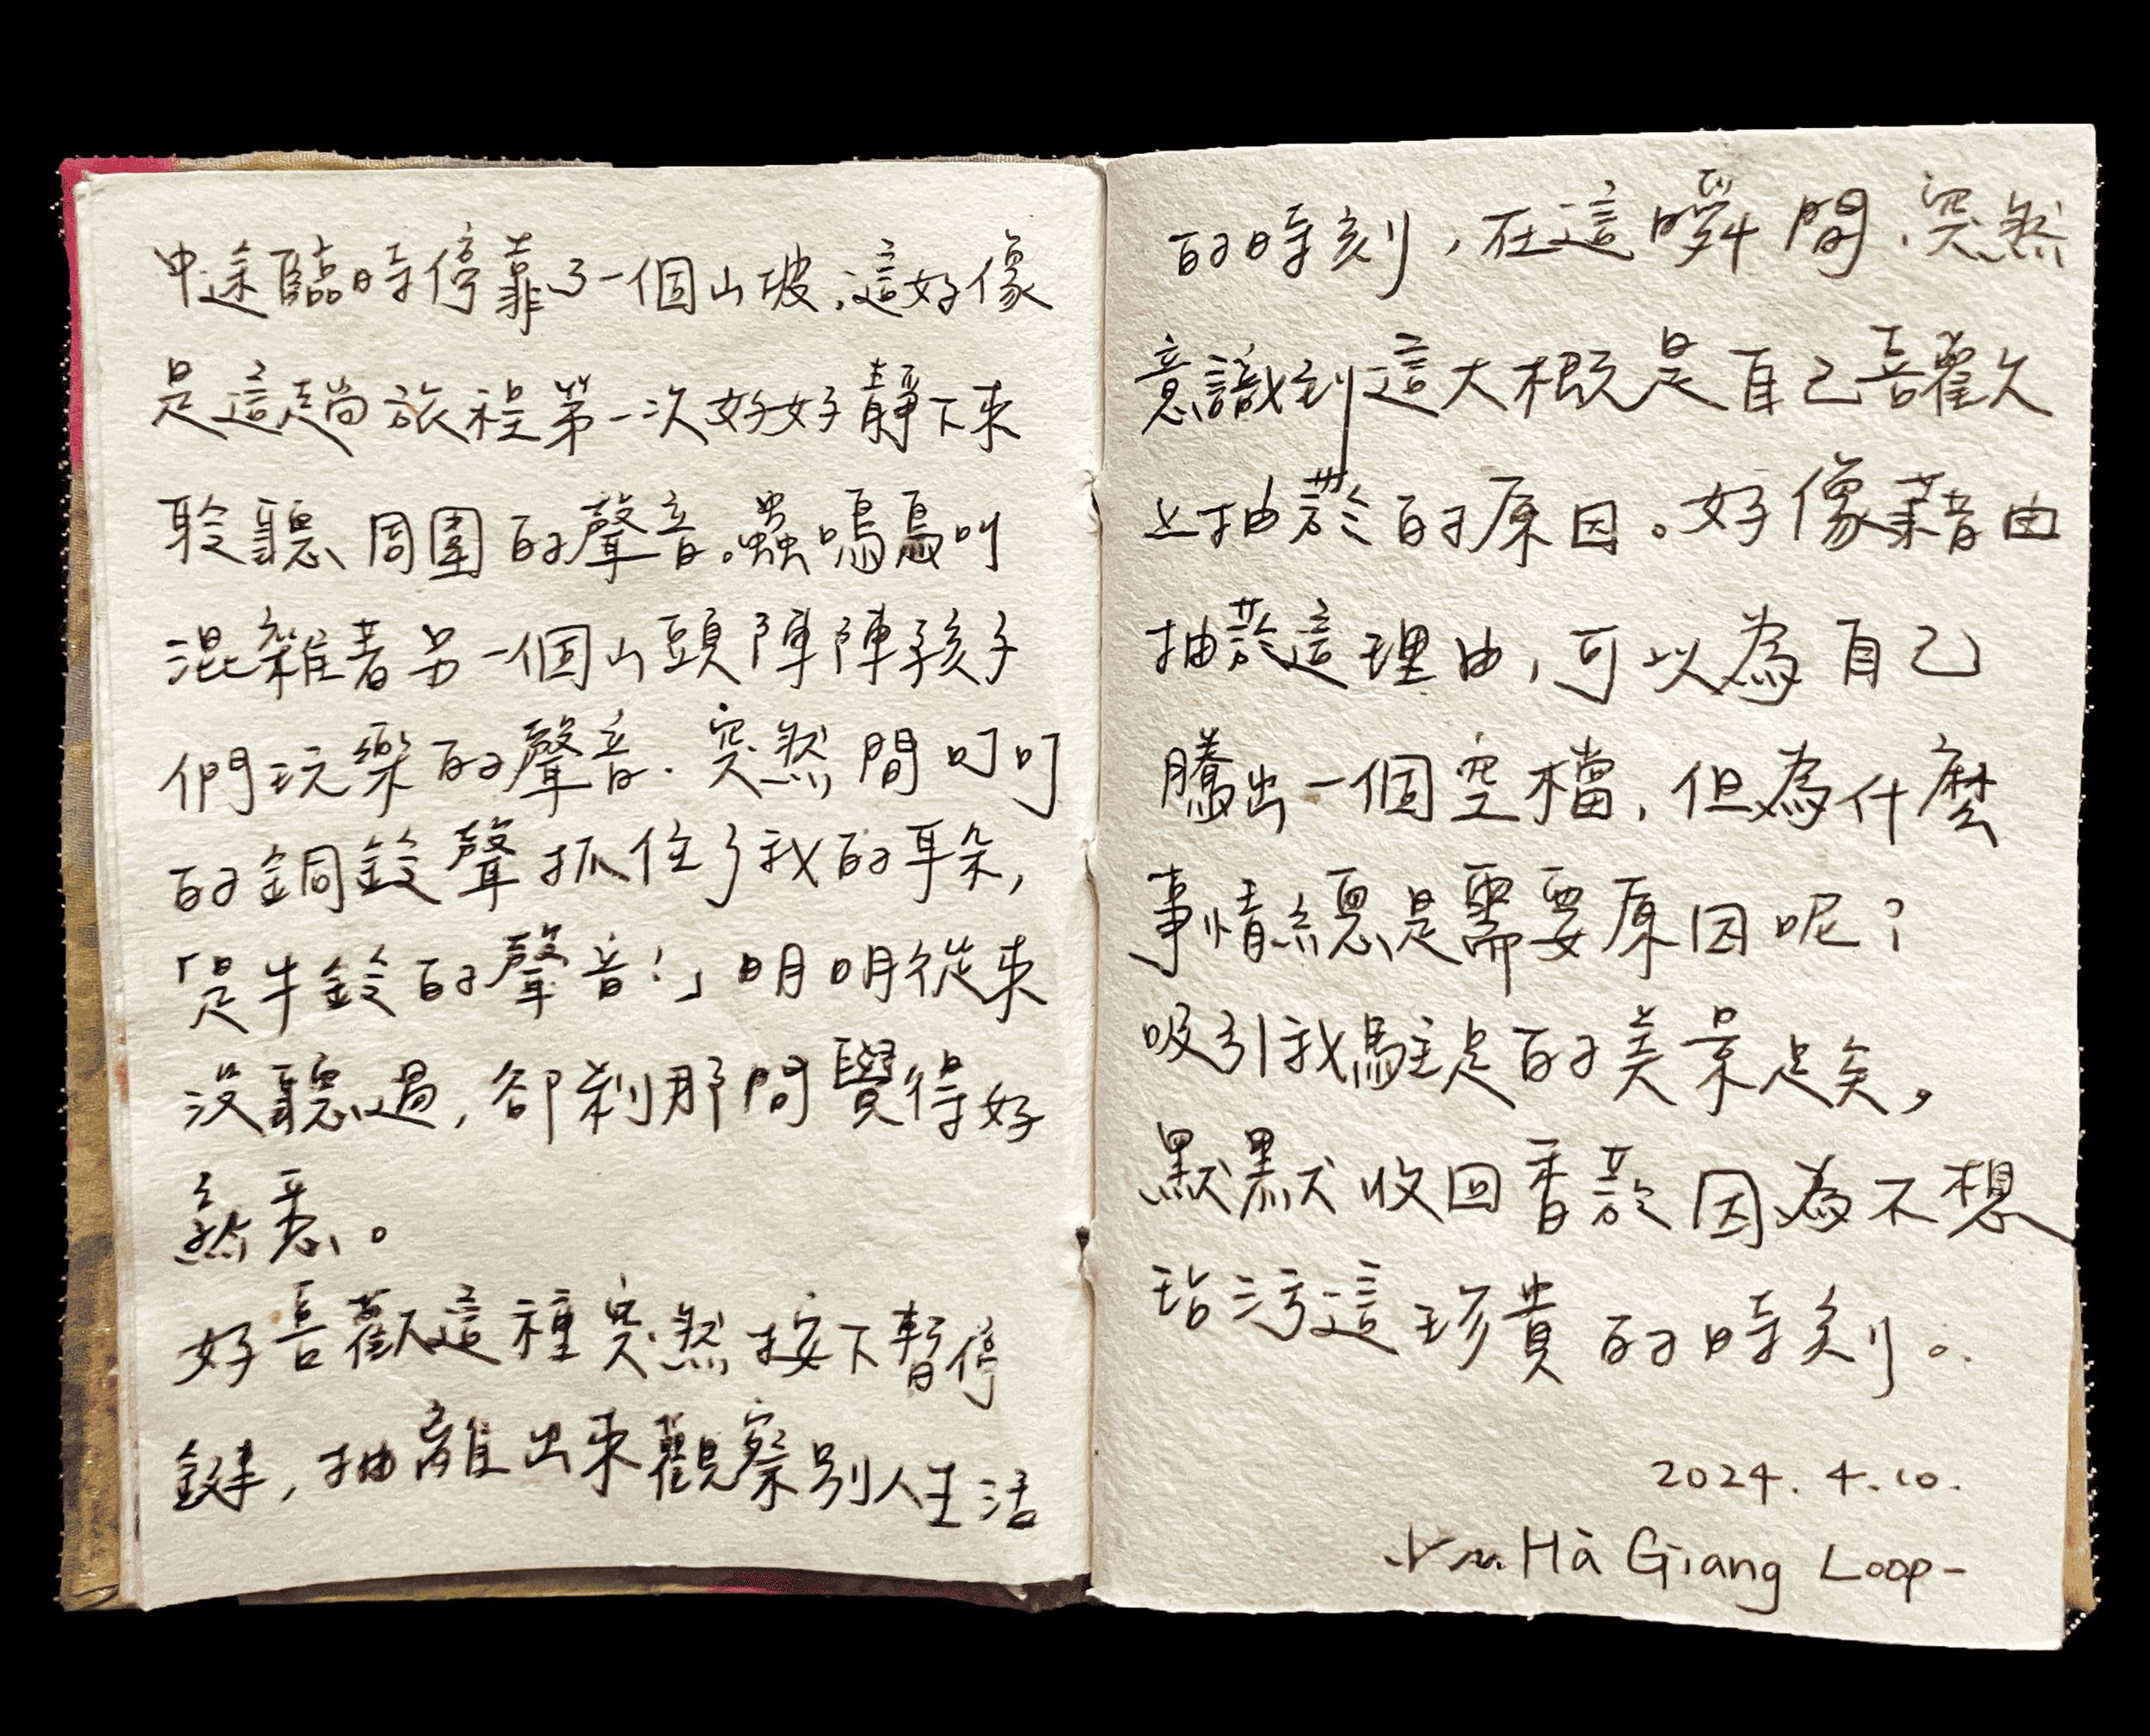 中途臨時停靠了一個山坡,這好像
是這趟旅程第一次好好靜下來
聆聽周圍的聲音。蟲鳴鳥叫
混雜著另一個山頭陣陣孩子
們玩樂的聲音.突然間叮叮
的銅鈴聲抓住了我的耳朵,
「是牛鈴的聲音!」明明從來
沒聽過,卻剎那間覺得好
熟悉。
好喜歡這種突然按下暫停
鍵,抽離出來觀察別人生活
的時刻,在這瞬間、突然
意識到這大概是自己喜歡
上抽菸的原因。好像藉由
抽菸這理由,可以為自己
騰出一個空檔,但為什麼
事情總是需要原因呢?
吸引我駐足的美景足矣,
默默收回香菸因為不想
玷污這珍貴的時刻。
2024.4.10.
Hà Giang Loop-